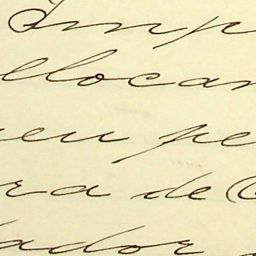 Imp
llocan
eu pe
ra de C
ador